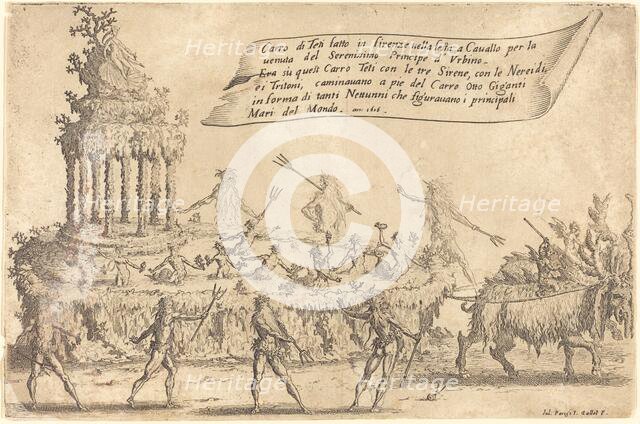 Carro di Teti fatto in firenze nella festa a Cauallo per la
uenuta del Serenissimo Principe d'Vrbino.
Era su questo Carro Teti con le tre Sirene, con le Nereidi,
et Tritoni, caminauano a pie del Carro Otto Giganti
in forma di tanti Nettunni che figurauano i principali
Mari del Mondo. an: 1616
Heritage Heritage
Heritage Heritage
Heritage Heritage
Iul. Parigi I. Callot F.